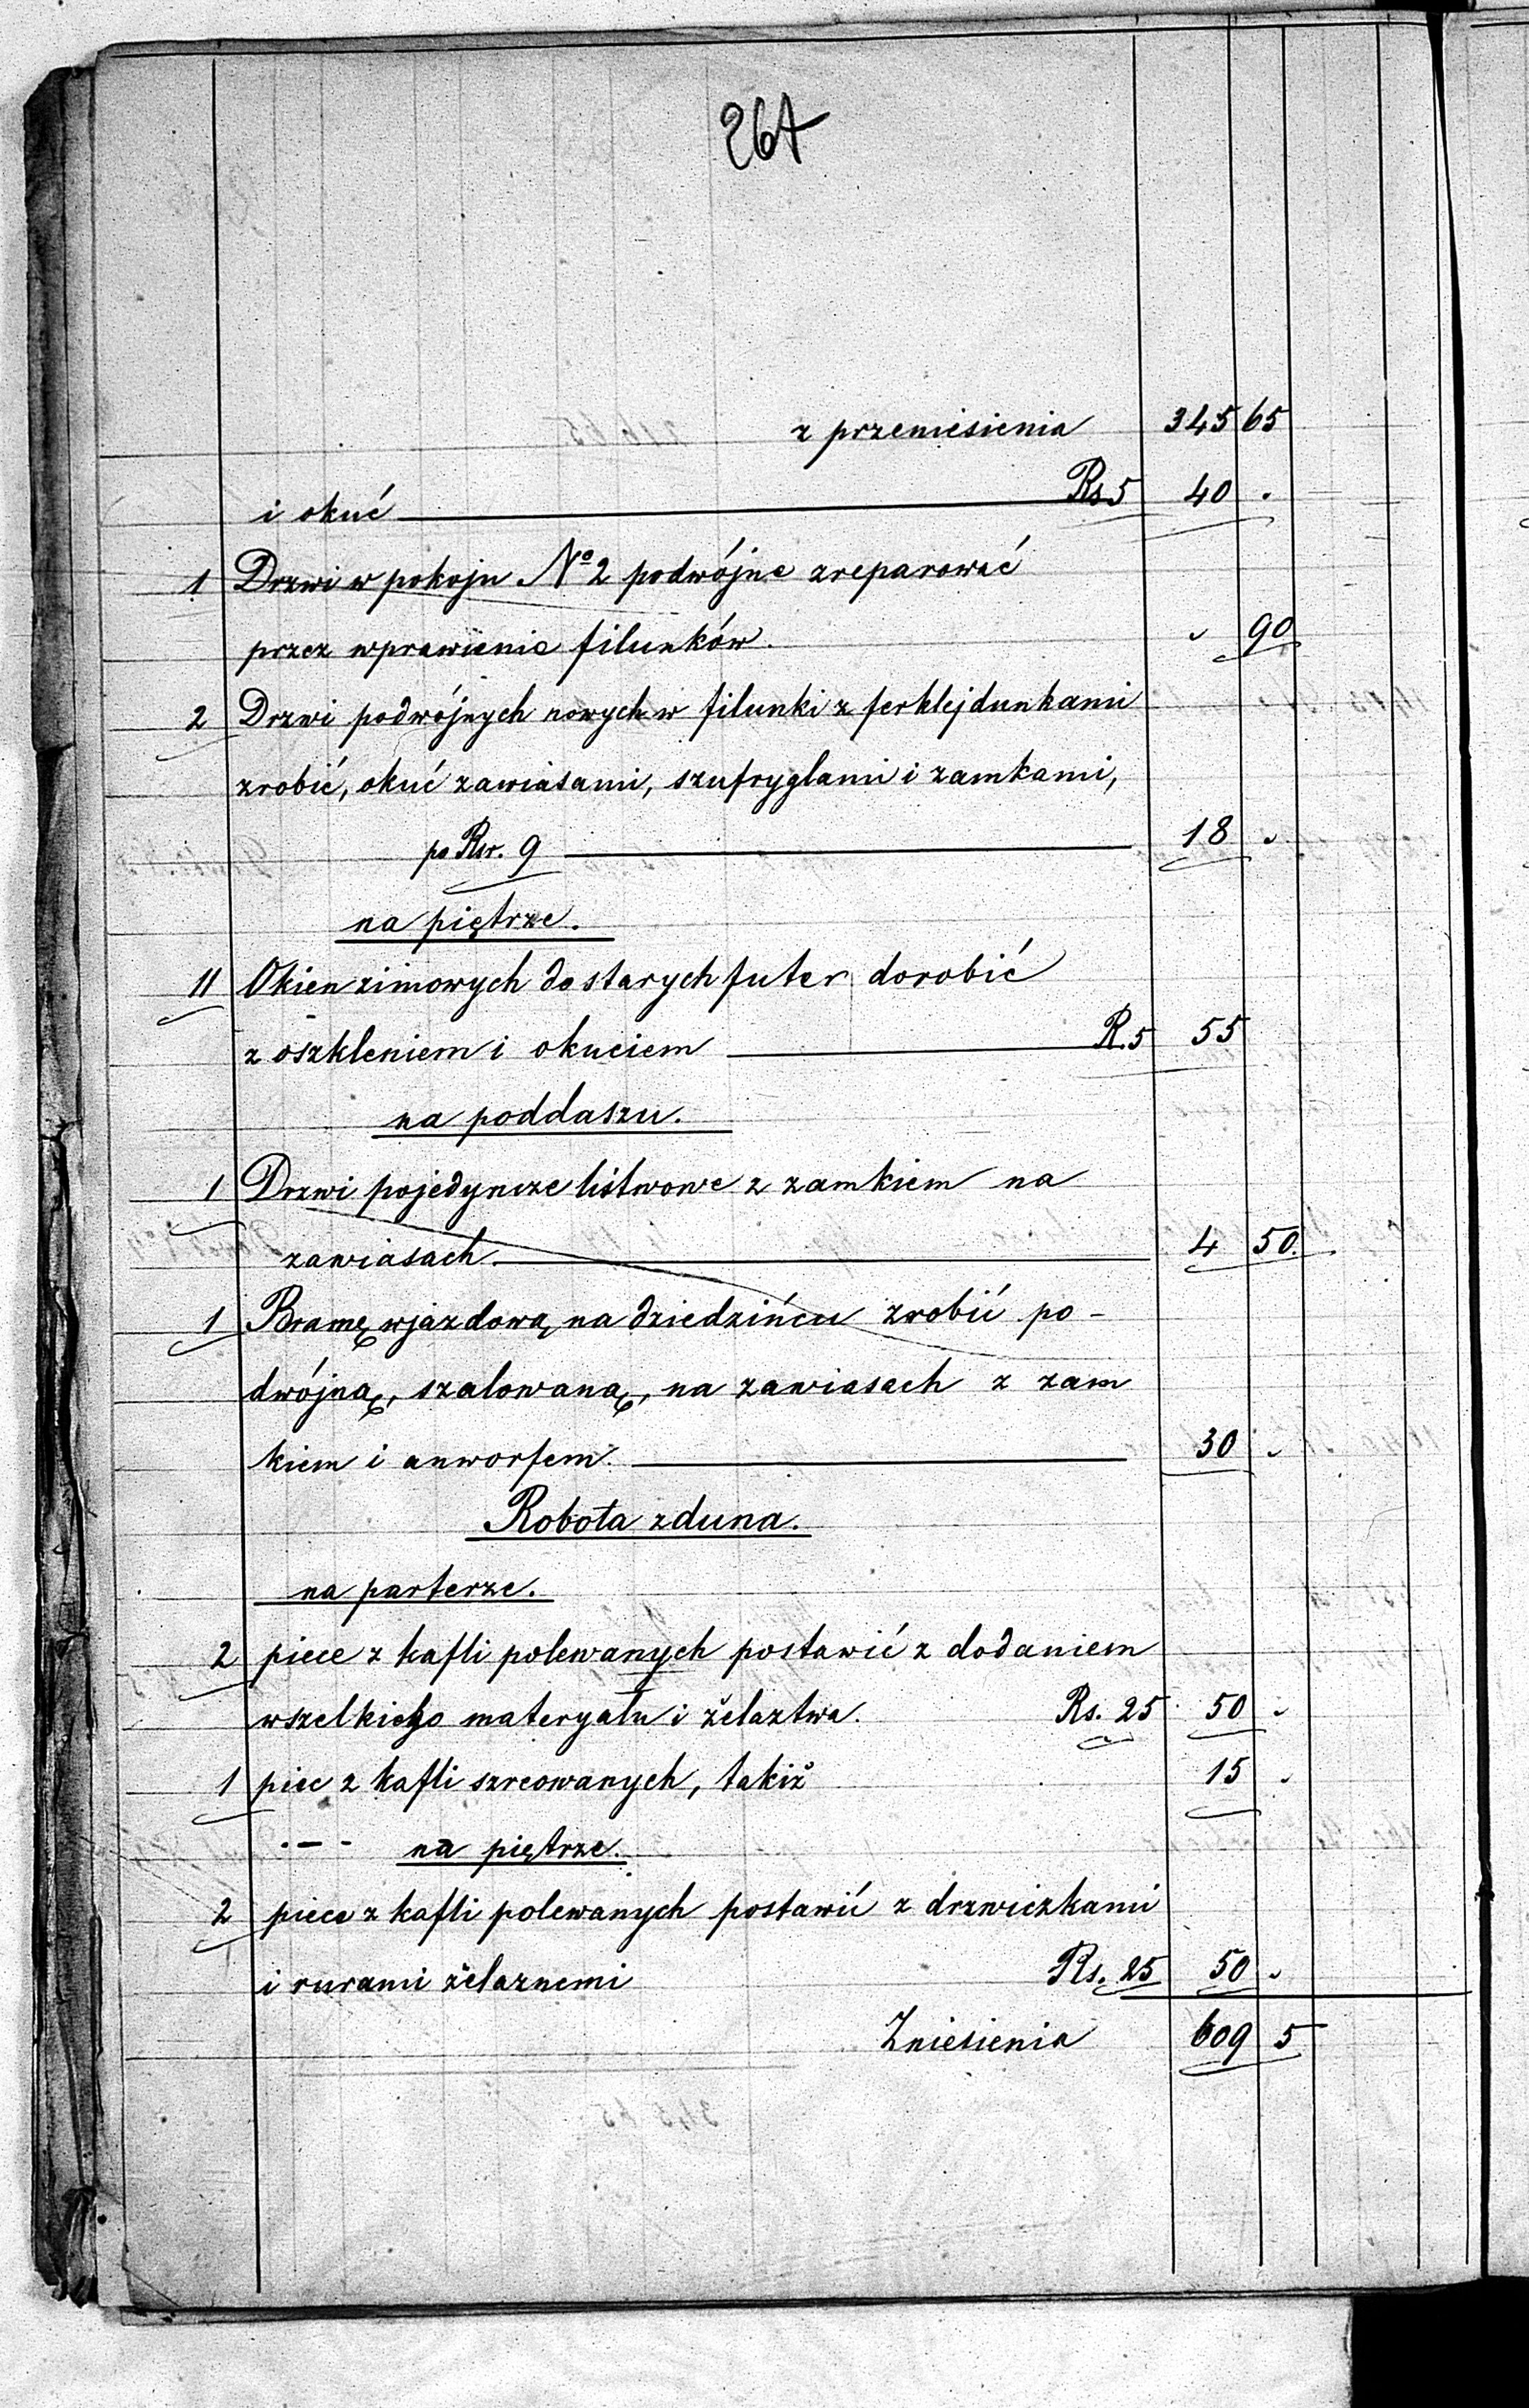 267
z przeniesienia 345 65
i okuć Rs 5 40 "
1 Drzwi w pokoju No 2 podwójne zreparować
przez wprawienie filunków. " 90
2 Drzwi podwójnych nowych w filunki z ferklejdunkami
zrobić, okuć zawiasami, szufryglami i zamkami,
po Rsr. 9 18 "
na piętrze.
11 Okien zimowych do starych futer dorobić
z oszkleniem i okuciem R. 5 55
na poddaszu.
1 Drzwi pojedyncze listwowe z zamkiem na
zawiasach. 4 50.
1 Bramę wjazdową na dziedzińcu zrobić po-
dwójną, szalowaną, na zawiasach z zam
kiem i anworfem. 30 "
Robota zduna.
na parterze.
2 piece z kafli polewanych postawić z dodaniem
wszelkiego materyału i żelaztwa. Rs. 25 50 "
1 piec z kafli szrcowanych, takiż 15 "
na piętrze.
2 piece z kafli polewanych postawić z drzwiczkami
i rurami żelaznemi Rs. 25 50 "
Zniesienia 609 5